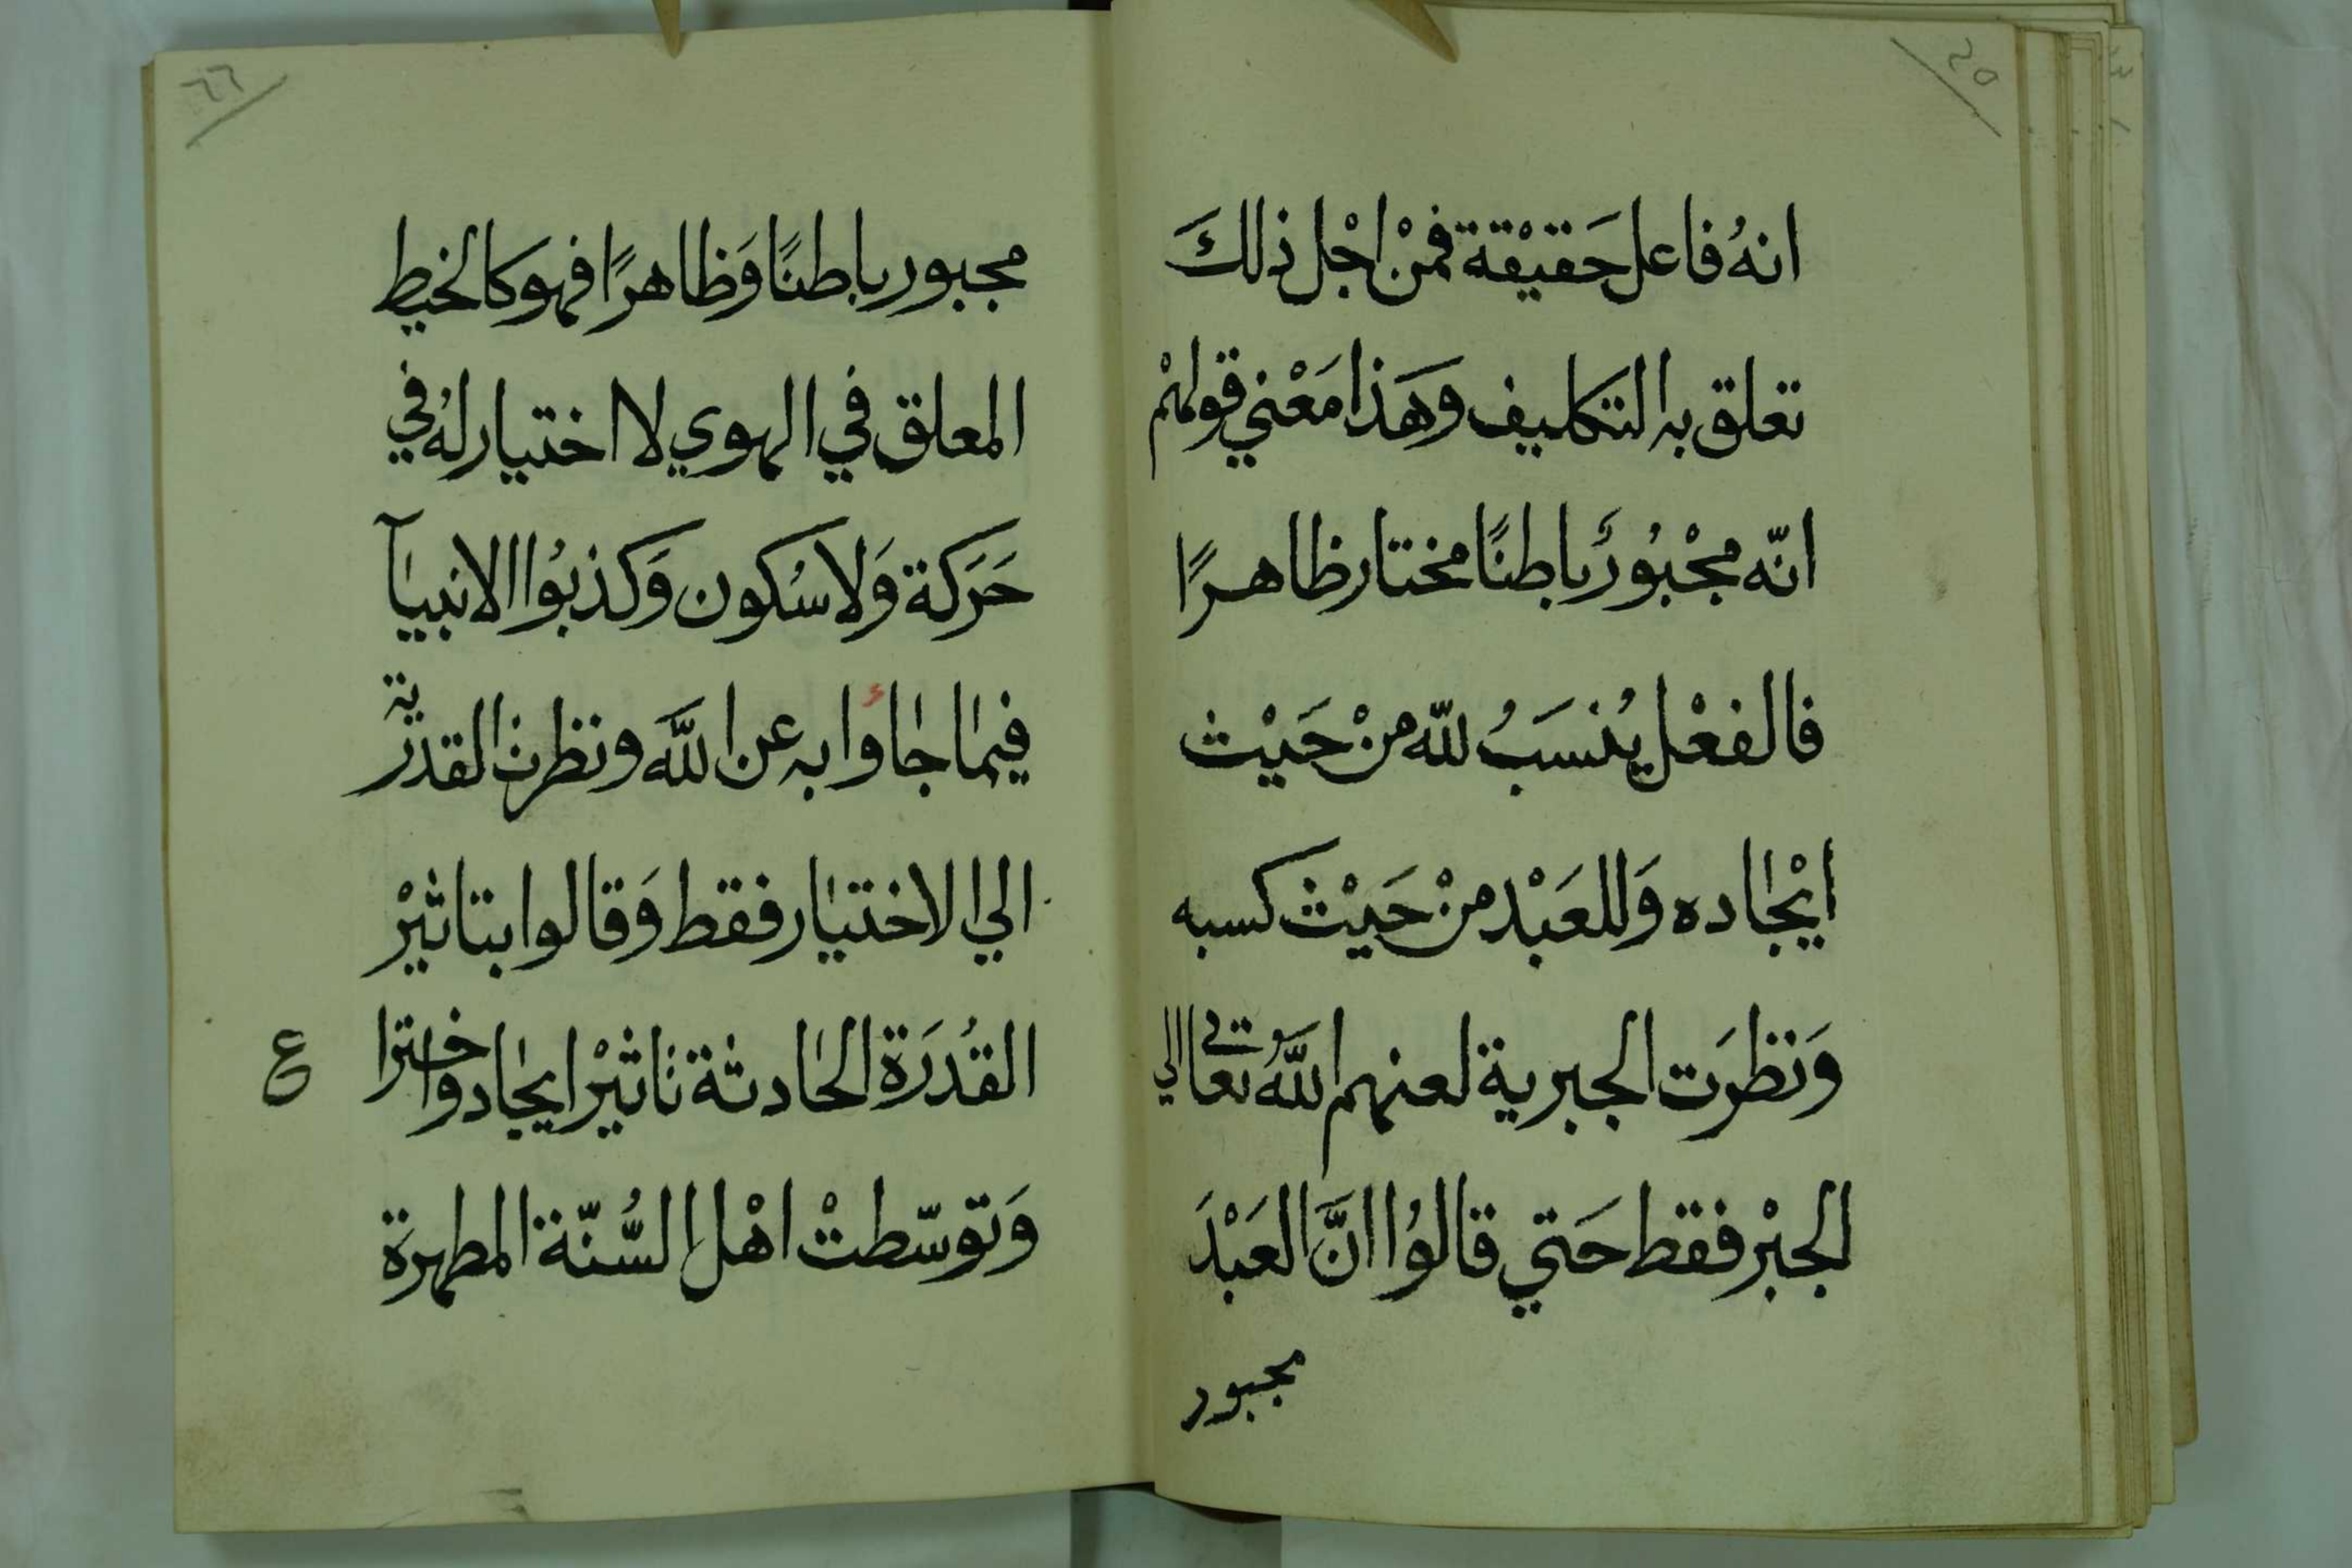 ٢٥
انهُ فاعل حَقيْقة فمنْ اجْل ذلكَ
تعلق به التكليف وهَذا مَعْني قولهْم
انّه مجْبُورٌ باطنًا مختار ظاهرًا
فالفعْل يُنسَبُ للّه منْ حَيْث
ايْجاده وَللعَبْد منْ حَيْث كسبه
وَنظرَت الجبرية لعنهم اللَّه تعالي الي
الجبْر فقط حَتي قالوُا انَّ العَبْدَ
مجبور
٦٦
مجبور باطنًا وَظاهرًا فهو كالخيط
المعلق في الهوي لا اختيار لهُ في
حَرَكة وَلا سُكون وَكذبوُا الانبيآ
فيما جاؤا به عن اللَّه ونظرت القدرية
الي الاختيار فقط وَقالوا بتاثيْر
القُدرَة الحادثة تاثيْر ايجاد واخترا
ع
وَتوسّطتْ اهْل السُّنّة المطهرَة